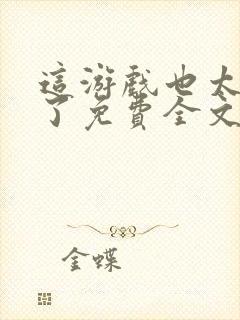 這游戲也太
了免費全文
金蝶